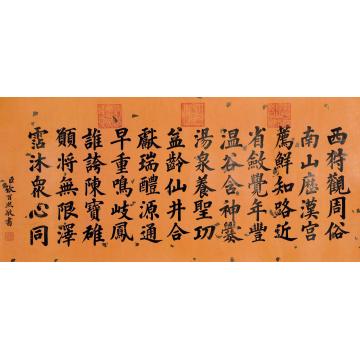 西狩觀周俗
南山歷漢宮
薦鮮知路近
省斂覺年豐
温谷含神爨
湯泉養聖功
益齡仙井合
獻瑞醴源通
早重鳴岐鳳
誰誇陳寶雄
願將無限澤
霑沐衆心同
臣張百熙敬書